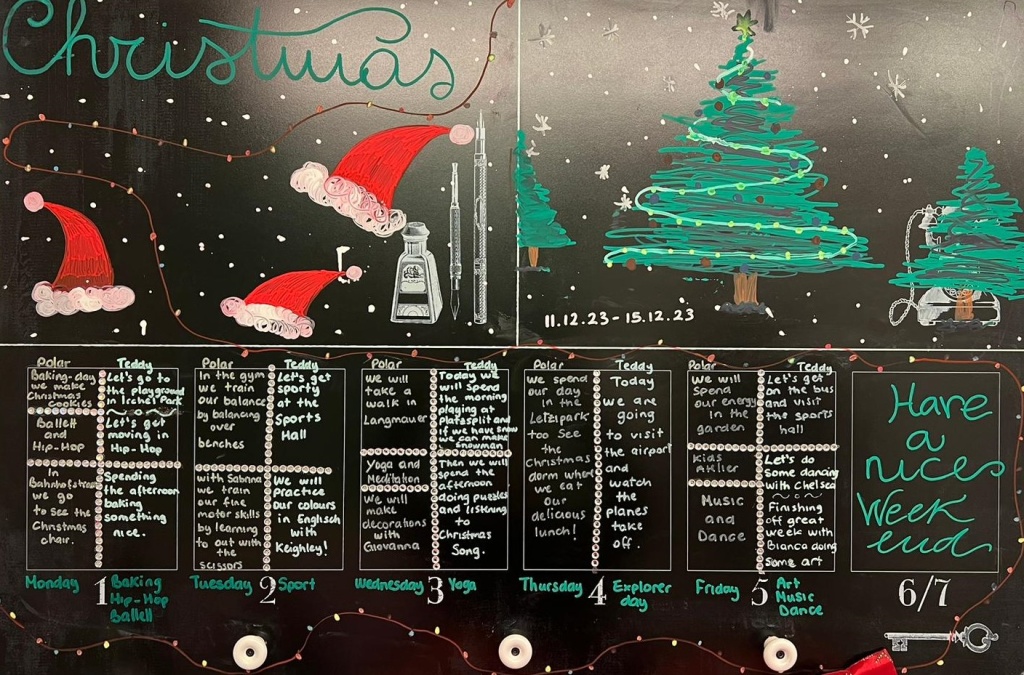 Christmas
11.12.23 - 15.12.23
Polar
Baking-day
we make
Christmas
cookies
Ballett
and
Hip-Hop
In
we go
to see the
Christmas
chair.
Teddy
Let's go to
the playground
in Pfingst Park
Let's get
moving in
Hip-Hop
Spending
the afternoon
baking
something
nice.
Polar
In the gym
we train
our balance
by balancing
over
benches
with Sabrina
we train
our fine
motor skills
by learning
to out with
the
scissors
Teddy
Let's get
sporty
at the
Sports
Hall
We will
practice
our colours
in Englisch
with
Keighley!
Polar
We will
take a
walk in
Langmauer
Yoga and
Meditation
We will
make
decorations
with
Giovanna
Teddy
Today we
will spend
the morning
playing at
platzspitz and
if we have snow
we can make
snowman
Then we will
spend the
afternoon
doing puzzles
and listening
to
Christmas
Song.
Polar
We spend
our day
in the
Letzipark
too See
the
Christmas
dorm where
we eat
our
delicious
lunch!
Teddy
Today
we are
going
to visit
the airport
and
watch
the
planes
take
off.
Polar
We will
spend
our energy
in the
garden
Kids
Atelier
Music
and
Dance
Teddy
Let's get
on the bus
and visit
the sports
hall
Let's do
some dancing
with Chelsea
Finishing
off great
week with
Bianca doing
some art
Have
a
nice
Week
end
Monday 1 Baking
Hip-Hop
Ballett
Tuesday 2 Sport
Wednesday 3 Yoga
Thursday 4 Explorer
day
Friday 5 Art
Music
Dance
6/7